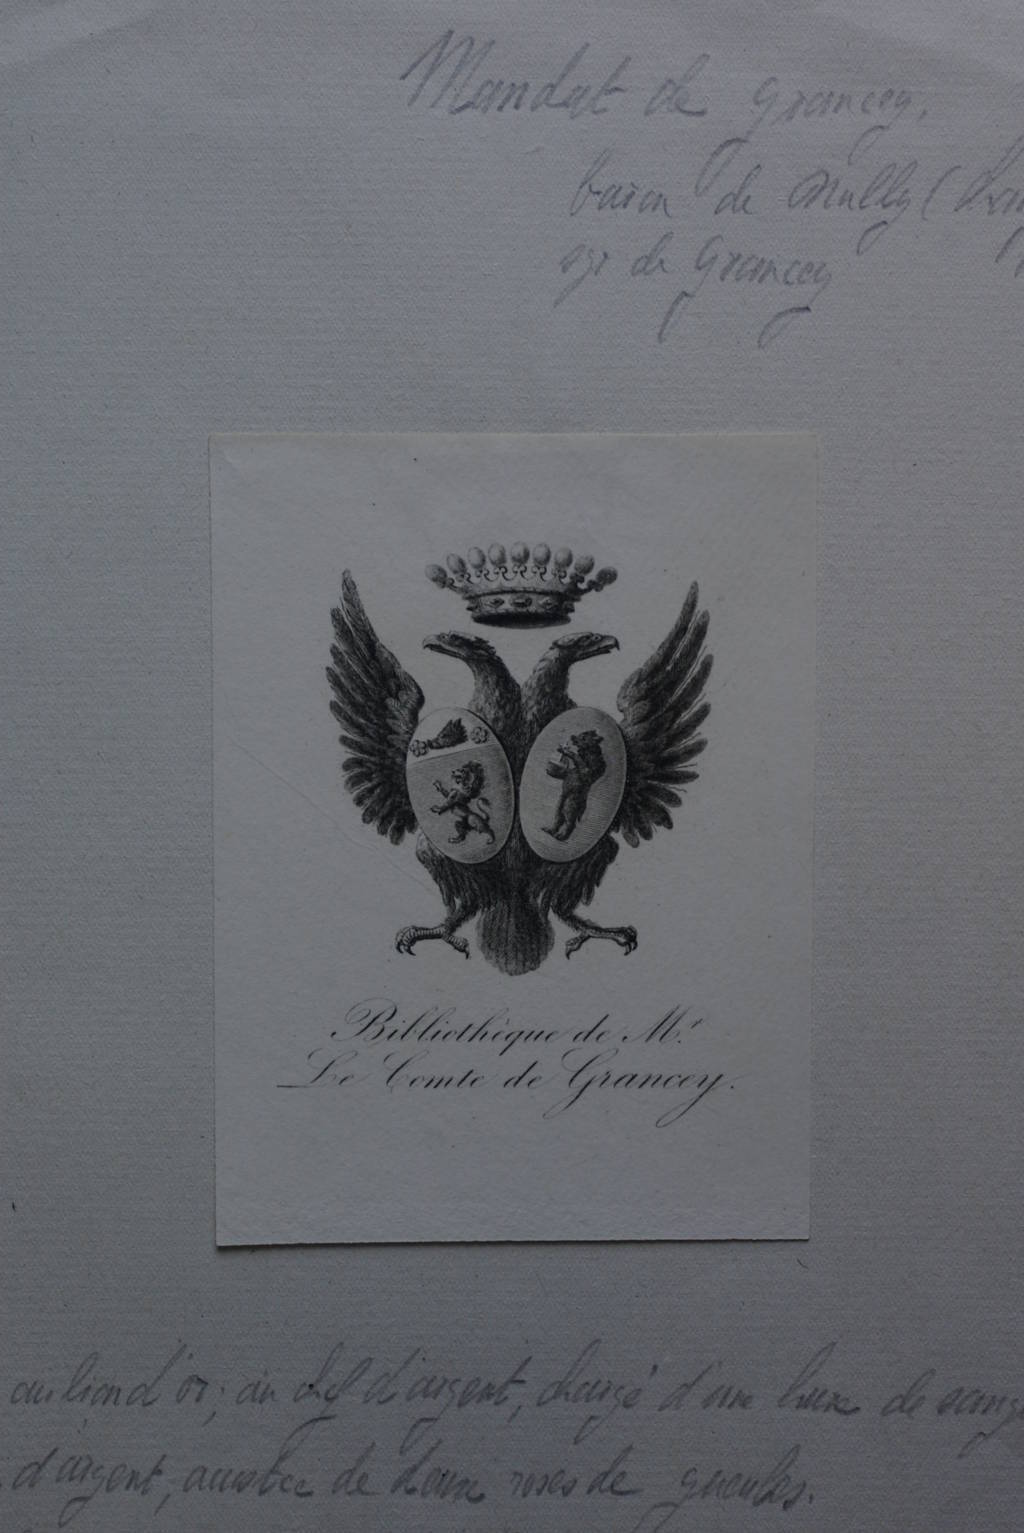 Mandat de Grancey.
baron de Nully (
sgr de Grancey
Bibliothèque de M.r
Le Comte de Grancey.
au lion d'or; au chef d'argent, chargé d'une hure de sang
d'argent, accostée de deux roses de gueules.